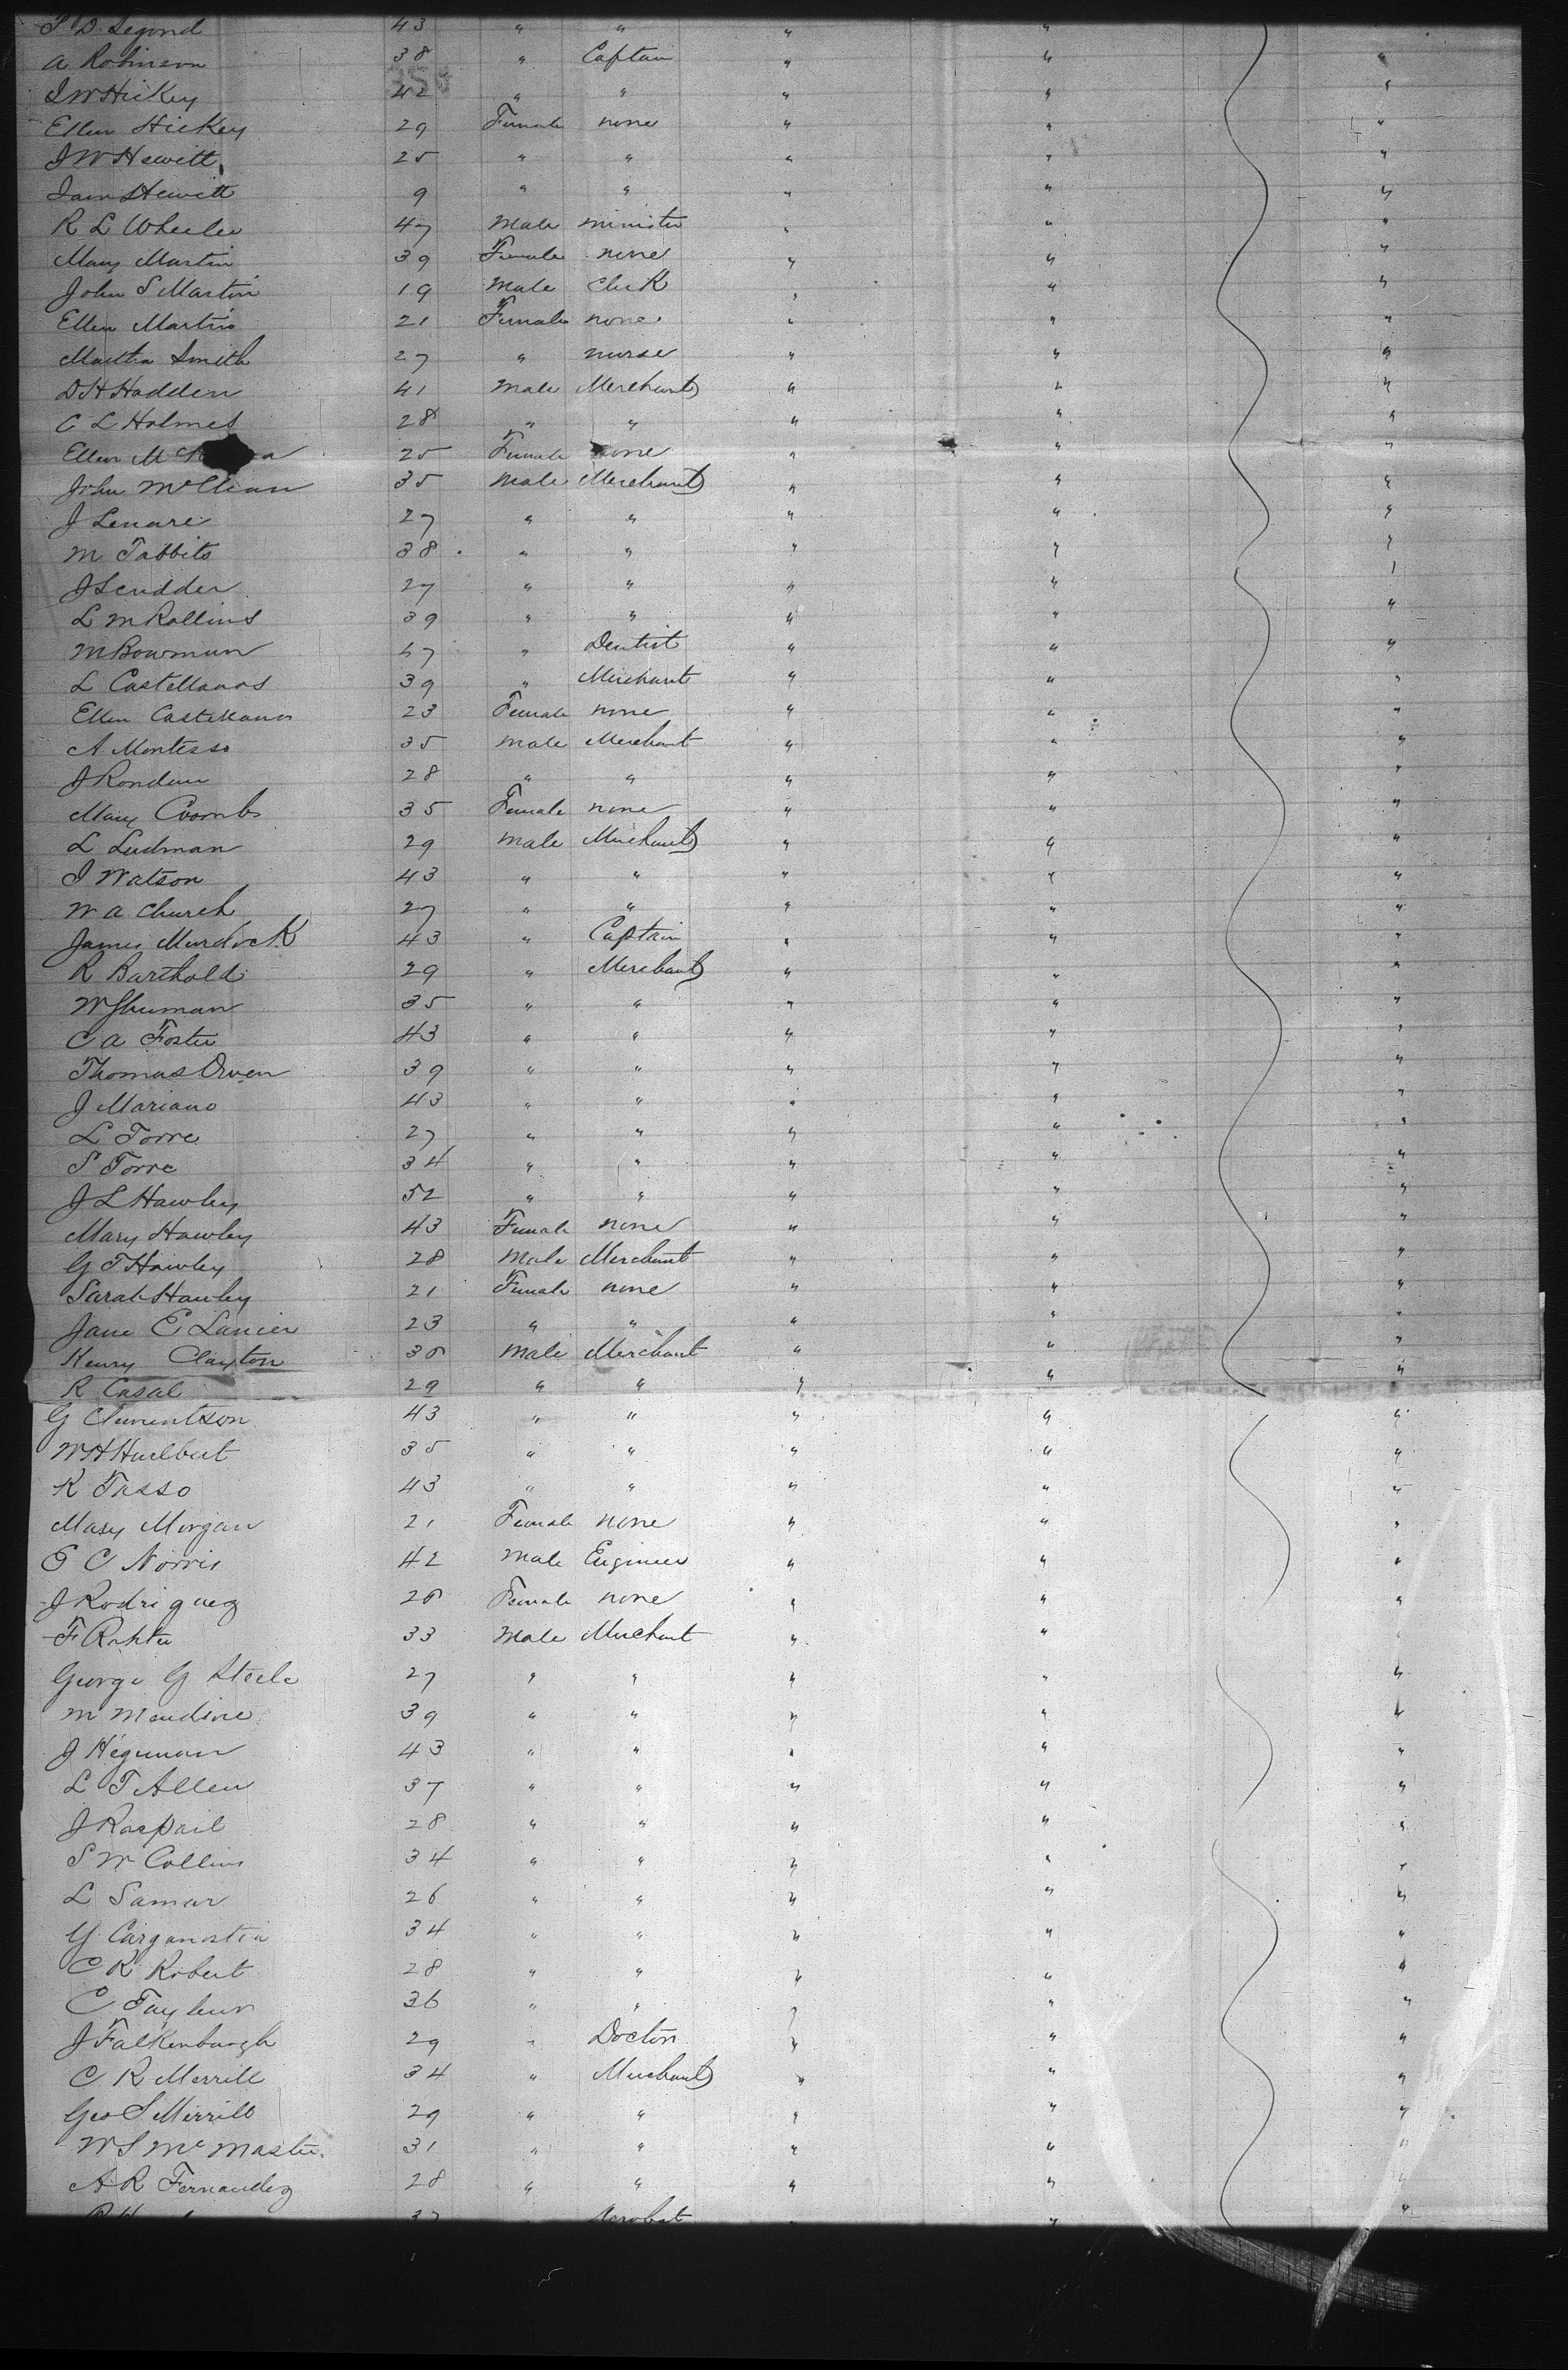 P D Segond 43 " " " "
A Robinson 38 " Captain " " "
J W Hickey 42 " " " " "
Ellen Hickey 29 Female none " " "
J W Hewitt 25 " " " " "
Hewitt 9 " " " " "
R L Wheeler 47 male minister " " "
Mary Martin 39 Female none " " "
John S Martin 19 male Clerk " " "
Ellen Martin 21 Female none " " "
Martha Smith 27 " nurse " " "
D H Hadden 41 male Merchant " " "
C L Holmes 28 " " " " "
Ellen 25 Female none " " "
John McClean 35 male Merchant " " "
J Lenare 27 " " " " "
M Tabbits 38 " " " " "
J Scudder 27 " " " " "
L M Rollins 39 " " " " "
M Bowman 47 " Dentist " " "
L Castellanos 39 " Merchant " " "
Ellen Castellanos 23 Female none " " "
A Montesso 35 male Merchant " " "
J Rondan 28 " " " " "
Mary Coombs 35 Female none " " "
L Ludman 29 male Merchant " " "
J Watson 43 " " " " "
W A Church 27 " " " " "
James Murdock 43 " Captain " " "
R Barthold 29 " Merchant " " "
W Shuman 35 " " " " "
C A Foster 43 " " " " "
Thomas Owen 39 " " " " "
J Mariano 43 " " " " "
L Torre 27 " " " " "
S Torre 34 " " " " "
J L Hawley 52 " " " " "
Mary Hawley 43 Female none " " "
G T Hawley 28 male Merchant " " "
Sarah Hawley 21 Female none " " "
Jane E Lanier 23 " " " " "
Henry Clayton 35 male Merchant " " "
R Casal 29 " " " " "
G Clementson 43 " " " " "
W H Hurlbut 35 " " " " "
R Tasso 43 " " " " "
Mary Morgan 21 Female none " " "
E C Norris 42 male Engineer " " "
J Rodriguez 25 Female none " " "
F Richter 33 male Merchant " "
George G Steele 27 " " " " "
M Mendive 39 " " " " "
J Hegeman 43 " " " " "
L T Allen 37 " " " " "
J Raspail 28 " " " " "
S W Collins 34 " " " " "
L Samar 26 " " " " "
G Carganostia 34 " " " " "
C R Robert 28 " " " " "
C Tayleur 36 " " " " "
J Falkenburgh 29 " Doctor " " "
C R Merrill 34 " Merchant " " "
Geo S Merrill 29 " " " " "
W S McMaster 31 " " " " "
A R Fernandez 28 " " " " "
37 Acrobat " " "